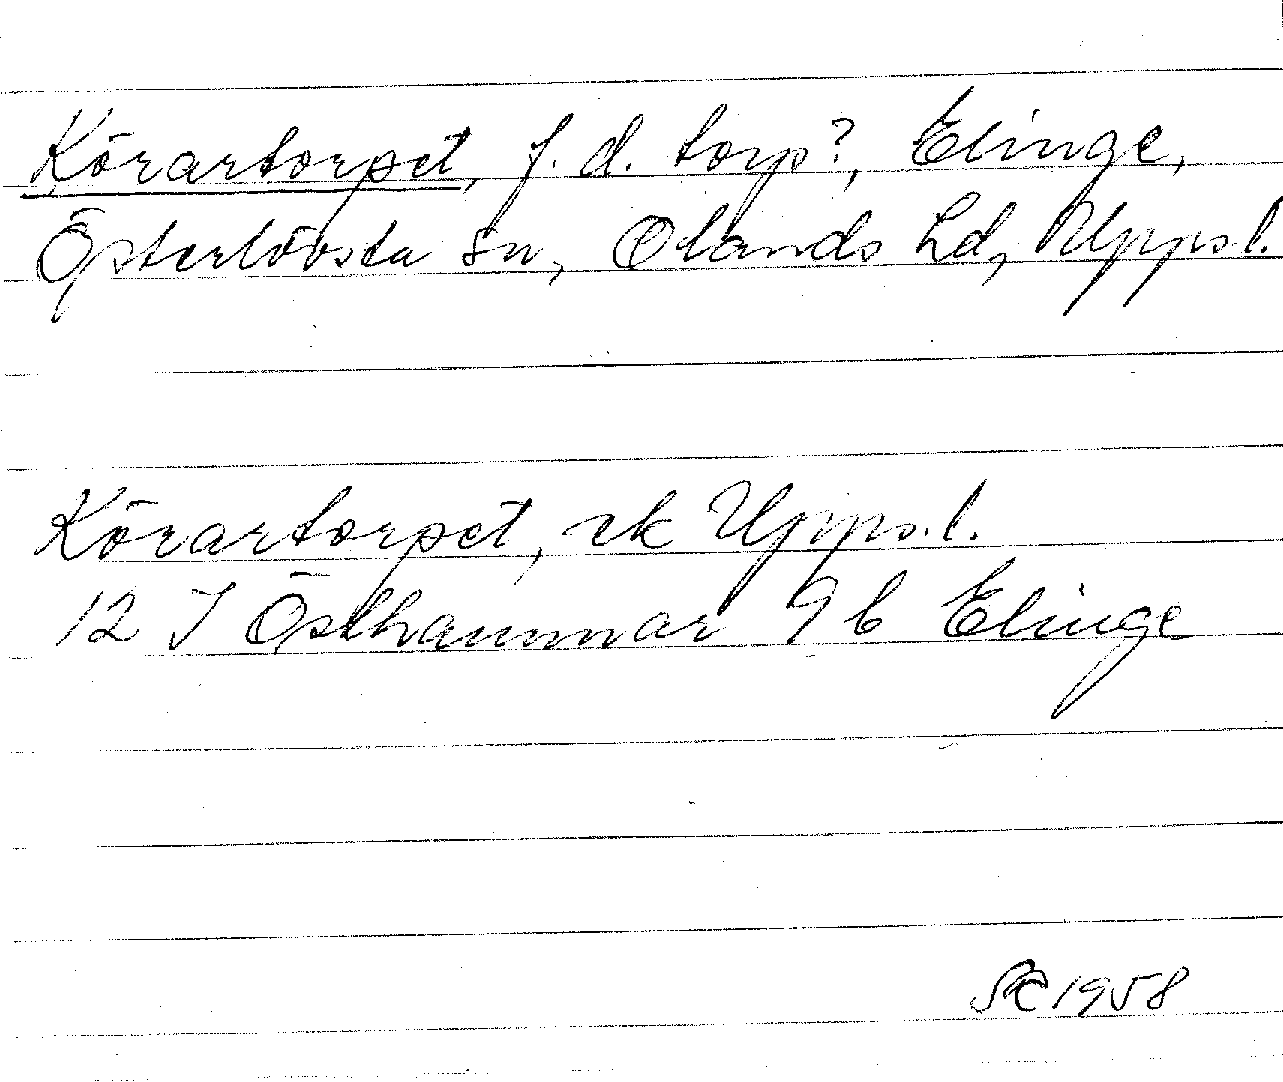 Körartorpet, f. d. torp?, Elinge,
Österlövsta sn, Olands hd, Upps l.
Körartorpet, ek Upps. l.
12 I Östhammar 9 b Elinge
1958